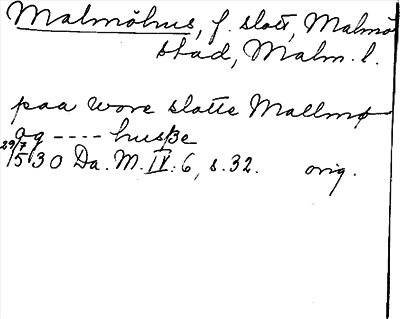 Malmöhus, f. slott, Malmö
stad, Malm. l.
paa wore slotte Mallmø
og ---- husße
29/7 1530 Da. M. IV: 6, s. 32. orig.